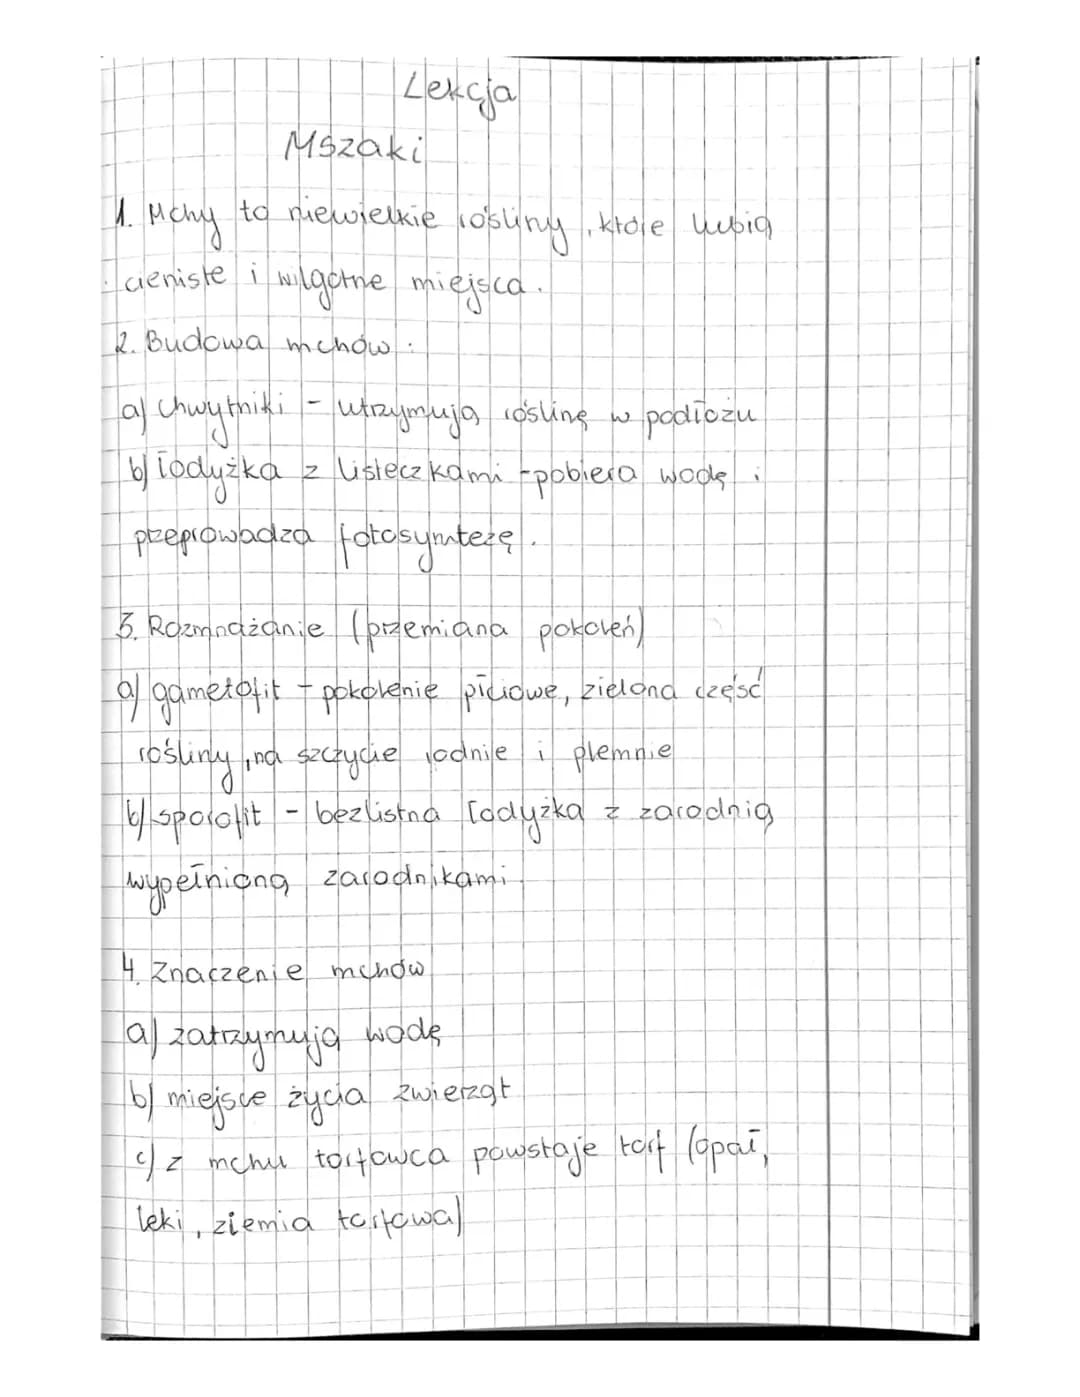 Lekcja
Mszaki
1. Mchy to niewielkie rośliny, które lubią
cieniste i wilgotne miejsca.
2. Budowa mchów:
a) Chwytniki - utrzymują roślinę w podłożu
b) łodyżka z listeczkami - pobiera wodę i
przeprowadza fotosymtezę.
3. Rozmnażanie (przemiana pokoleń)
a) gametofit - pokolenie płciowe, zielona część
rośliny, na szczycie rodnie i plemnie
b) sporofit - bezlistna łodyżka z zarodnią
wypełnioną zarodnikami.
4. Znaczenie mchów
a) zatrzymują wodę
b) miejsce życia zwierząt
c) z mchu torfowca powstaje torf (opał,
leki, ziemia torfowa)